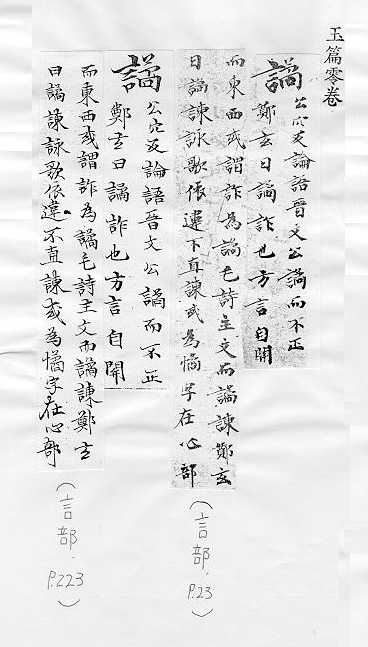 玉篇零卷
譎公穴反論語晉文公譎而不正
鄭玄曰譎詐也方言自開
而東西或謂詐為譎毛詩主文而譎諫鄭玄
曰譎諫詠歌依違下直諫或為憰字在心部
(言部.P.23)
譎公穴反論語晉文公譎而不正
鄭玄曰譎詐也方言自開
而東西或謂詐為譎毛詩主文而譎諫鄭玄
曰譎諫詠歌依違不直諫或為憰字在心部
(言部.P.223)